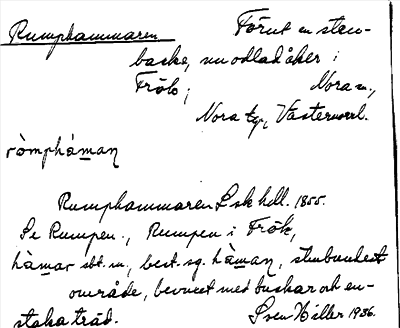 Rumphammaren Förut en sten-
backe, nu odlad åker i
Frök, Nora sn,
Nora tg, Västernorrl.
ròmphàman
Rumphammaren Lsk hdl. 1855.
Se Rumpen, Rumpen i Frök,
hàmar sbt. m., best. sg. hàman, stenbundet
område, bevuxet med buskar och en-
staka träd. Sven Hiller 1936.